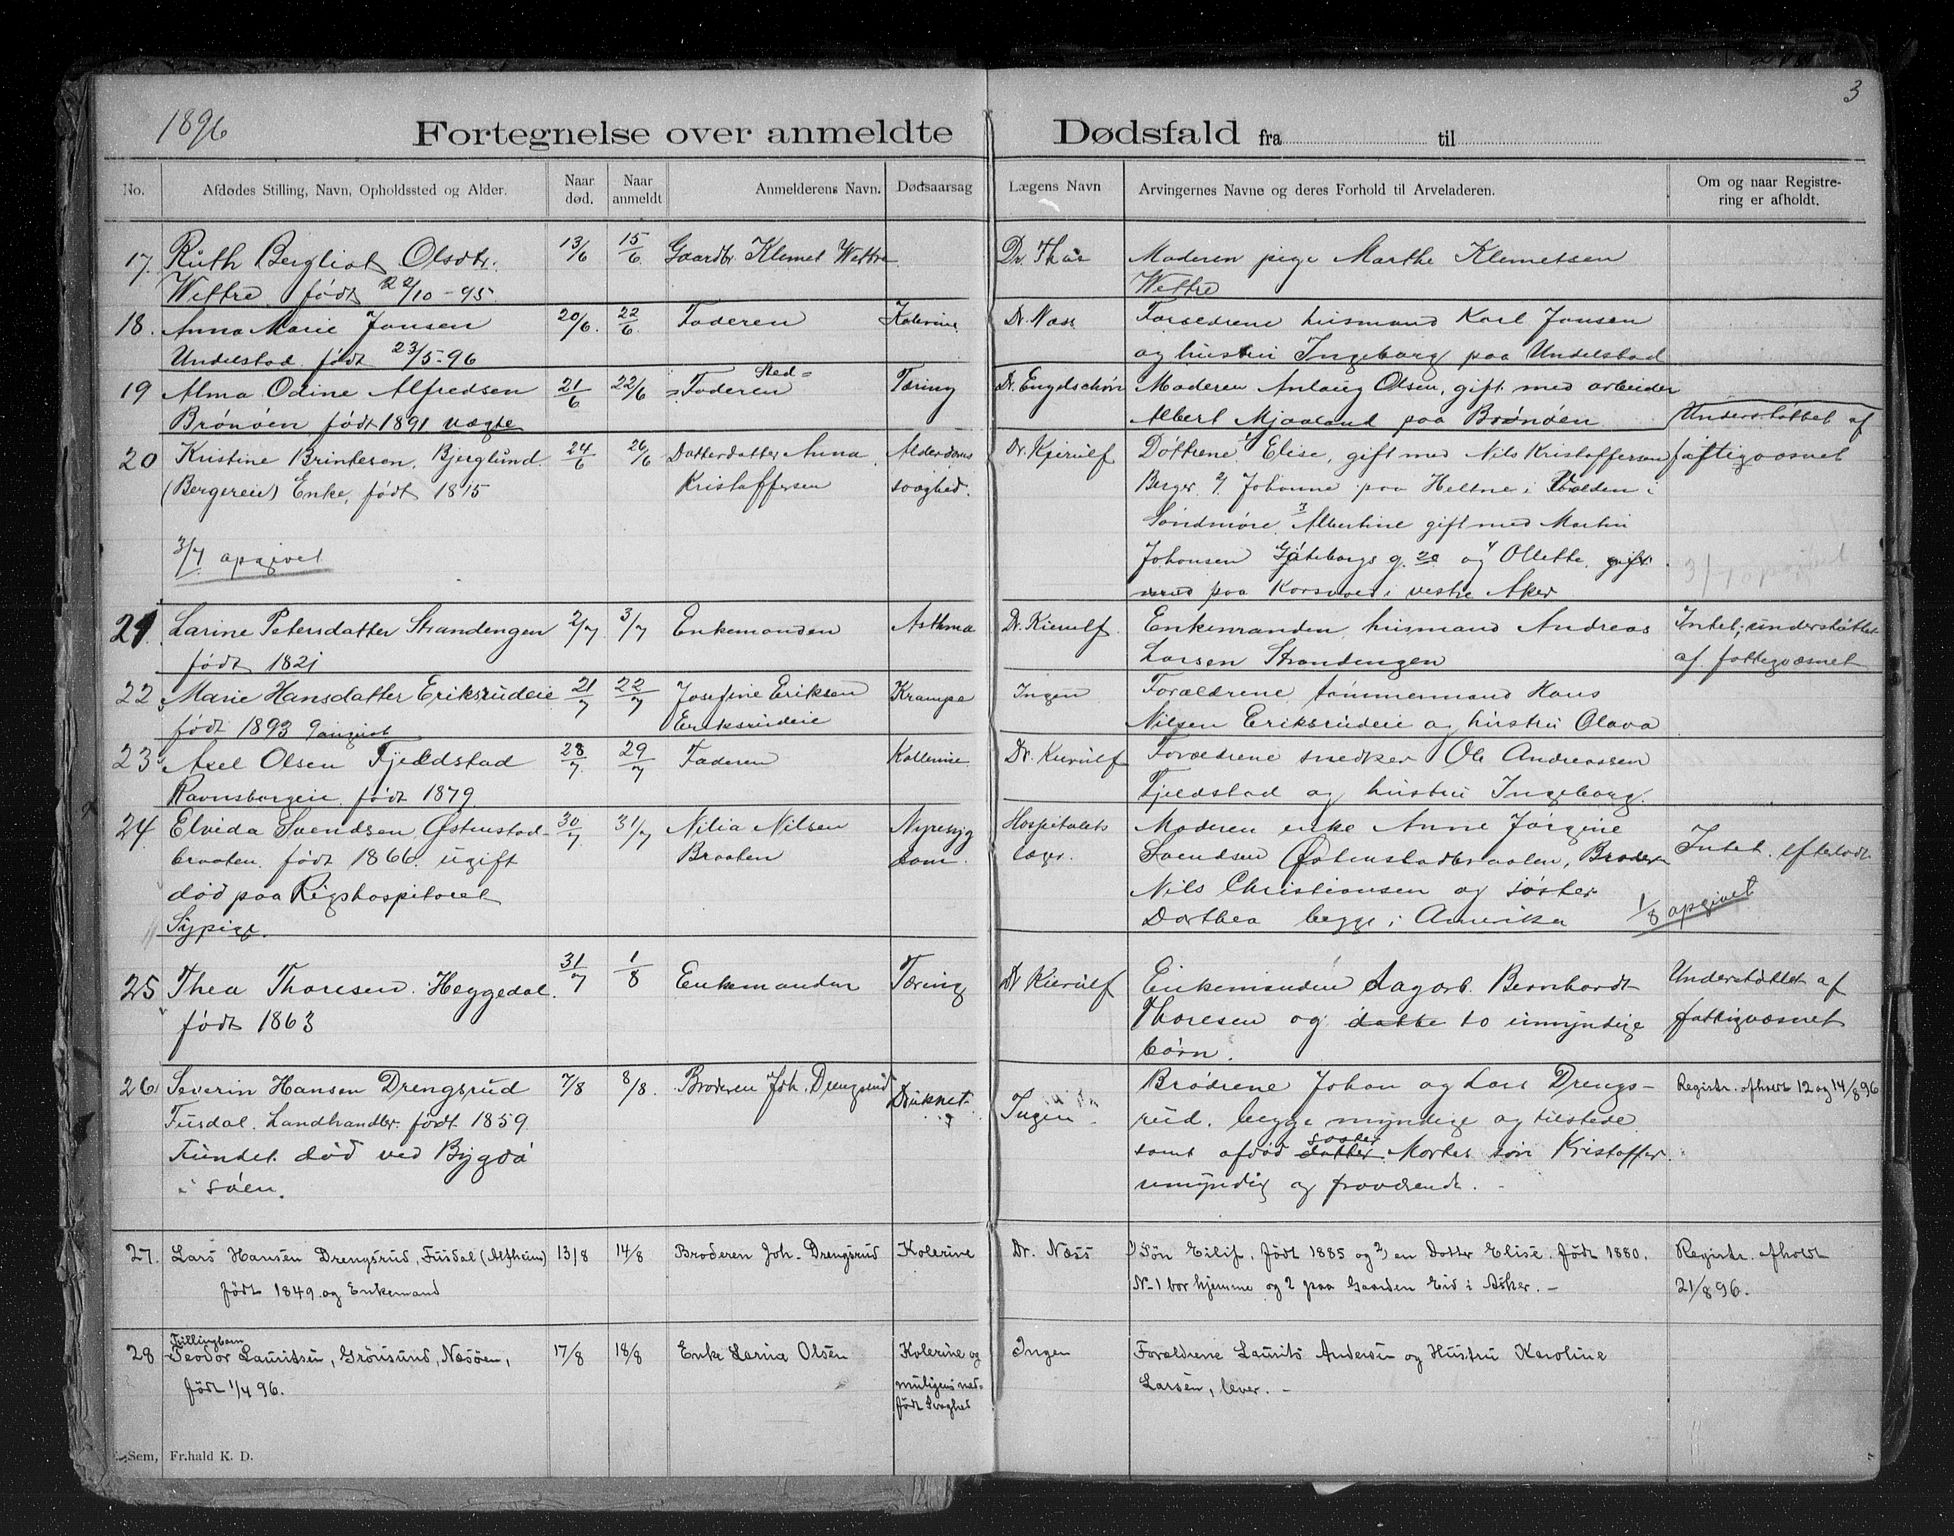 1896
3
Fortegnelse over anmeldte Dødsfald fra til
No. Afdødes Stilling, Navn, Opholdssted og Alder. Naar død. Naar anmeldt Anmelderens Navn. Dødsaarsag Lægens Navn Arvingernes Navne og deres Forhold til Arveladeren. Om og naar Registrering er afholdt.
17. Ruth Bergliot Olsdtr. 13/6 15/6 Gaardbr. Klemet Wettre Dr. Thår Moderen pige Marthe Klemetsen
Wettre født 22/10-95. Wettre
18. Anna Marie Jansen 20/6. 22/6. Faderen Kolerine Dr. Næss Forældrene husmand Karl Jansen
Undelstad født 23/5-96 og hustru Ingeborg paa Undelstad
19 Alma Odine Alfredsen 21/6 22/6 Sted=Faderen Tæring Dr. Engelschiøn Moderen Anlaug Olsen, gift med arbeider
Brønøen født 1891 uægte Albert Mjaaland paa Brønøen Understøttet af
20 Kristine Brintesen, Bjerglund. 24/6 26/6 Datterdatter Anna Alderdoms Dr. Kjerulf Døttrene 1/ Elise, gift med Nils Kristoffersen fattigvæsnet
(Bergereie) Enke, født 1815 Kristoffersen svaghed. Berger 2/ Johanne paa Heltne i Volden i
Søndmøre 3 Albertine gift med Martin
3/7 apgivet Johansen Gøteborgs g. 20 og 4 Ollette, gift 3/7 apgivet
paa Korsvoll i vestre Aker
21. Larine Petersdatter Strandengen 2/7. 3/7 Enkemanden Asthma Dr. Kierulf. Enkemanden, husmand Andreas Intet; understøttet
født 1821 Larsen Strandengen af fattigvæsnet
22 Marie Hansdatter Eriksrudeie 21/7 22/7 Josefine Eriksen Krampe Ingen Forældrene, tømmermand Hans
født 1893 9 august Eriksrudeie Nilsen Eriksrudeie og hustru Olava
23 Axel Olsen Fjeldstad 28/7. 29/7 Faderen Kollerine. Dr. Kierulf Forældrene snedker Ole Andreassen
Ravnsborgeie. født 1879 Fjeldstad og hustru Ingeborg.
24. Elvida Svendsen, Østenstad- 30/7 31/7 Nilia Nilsen Nyresyg Hospitalets Moderen enke Anne Jørgine
braaten født 1866. ugift Braaten dom. læger. Svendsen Østenstadbraaten, Broder Intet efterladt
død paa Rigshospitalet Nils Christiansen og søster
Sypige. Dorthea begge i Amerika 1/8 apgivet
25 Thea Thoresen. Heggedal. 31/7 1/8 Enkemanden Tæring Dr Kierulf Enkemanden Sagarb. Bernhardt Understøttet af
født 1863 Thoresen og datte to umyndige fattigvæsnet
børn.
26 Severin Hansen Drengsrud 7/8 8/8. Broderen Joh. Drengsrud Druknet Ingen Brødrene Johan og Lars Drengs- Registr. afholdt 12 og 14/8 96
Fusdal. Landhandler. født 1859 rud. begge myndige og tilstede
Fundet død ved Bygdø samt afdød datter søster Marthes søn Kristoffer
i søen. umyndig og fraværende. -
27. Lars Hansen Drengsrud, Fusdal (Alfheim) 13/8 14/8 Broderen Joh. Drengsrud Kolerine Dr. Næss 1) Søn Eilif, født 1885 og 2) en Datter Elise. født 1880. Registr. afholdt
født 1849. og Enkemand N-1 bor hjemme og 2 paa Gaarden Eid i Asker. - 21/8 96.
28 Tvillingbarn Teodor Lauritsen, Grønsund, Næsøen, 17/8 18/8 Enke Larna Olsen Kolerine og Ingen Forældrene Laurits Andersen og Hustru Karoline
født 1/4 96. muligens med- Larsen, lever. -
født Svaghed
E. Sem, Fr.hald K. D.